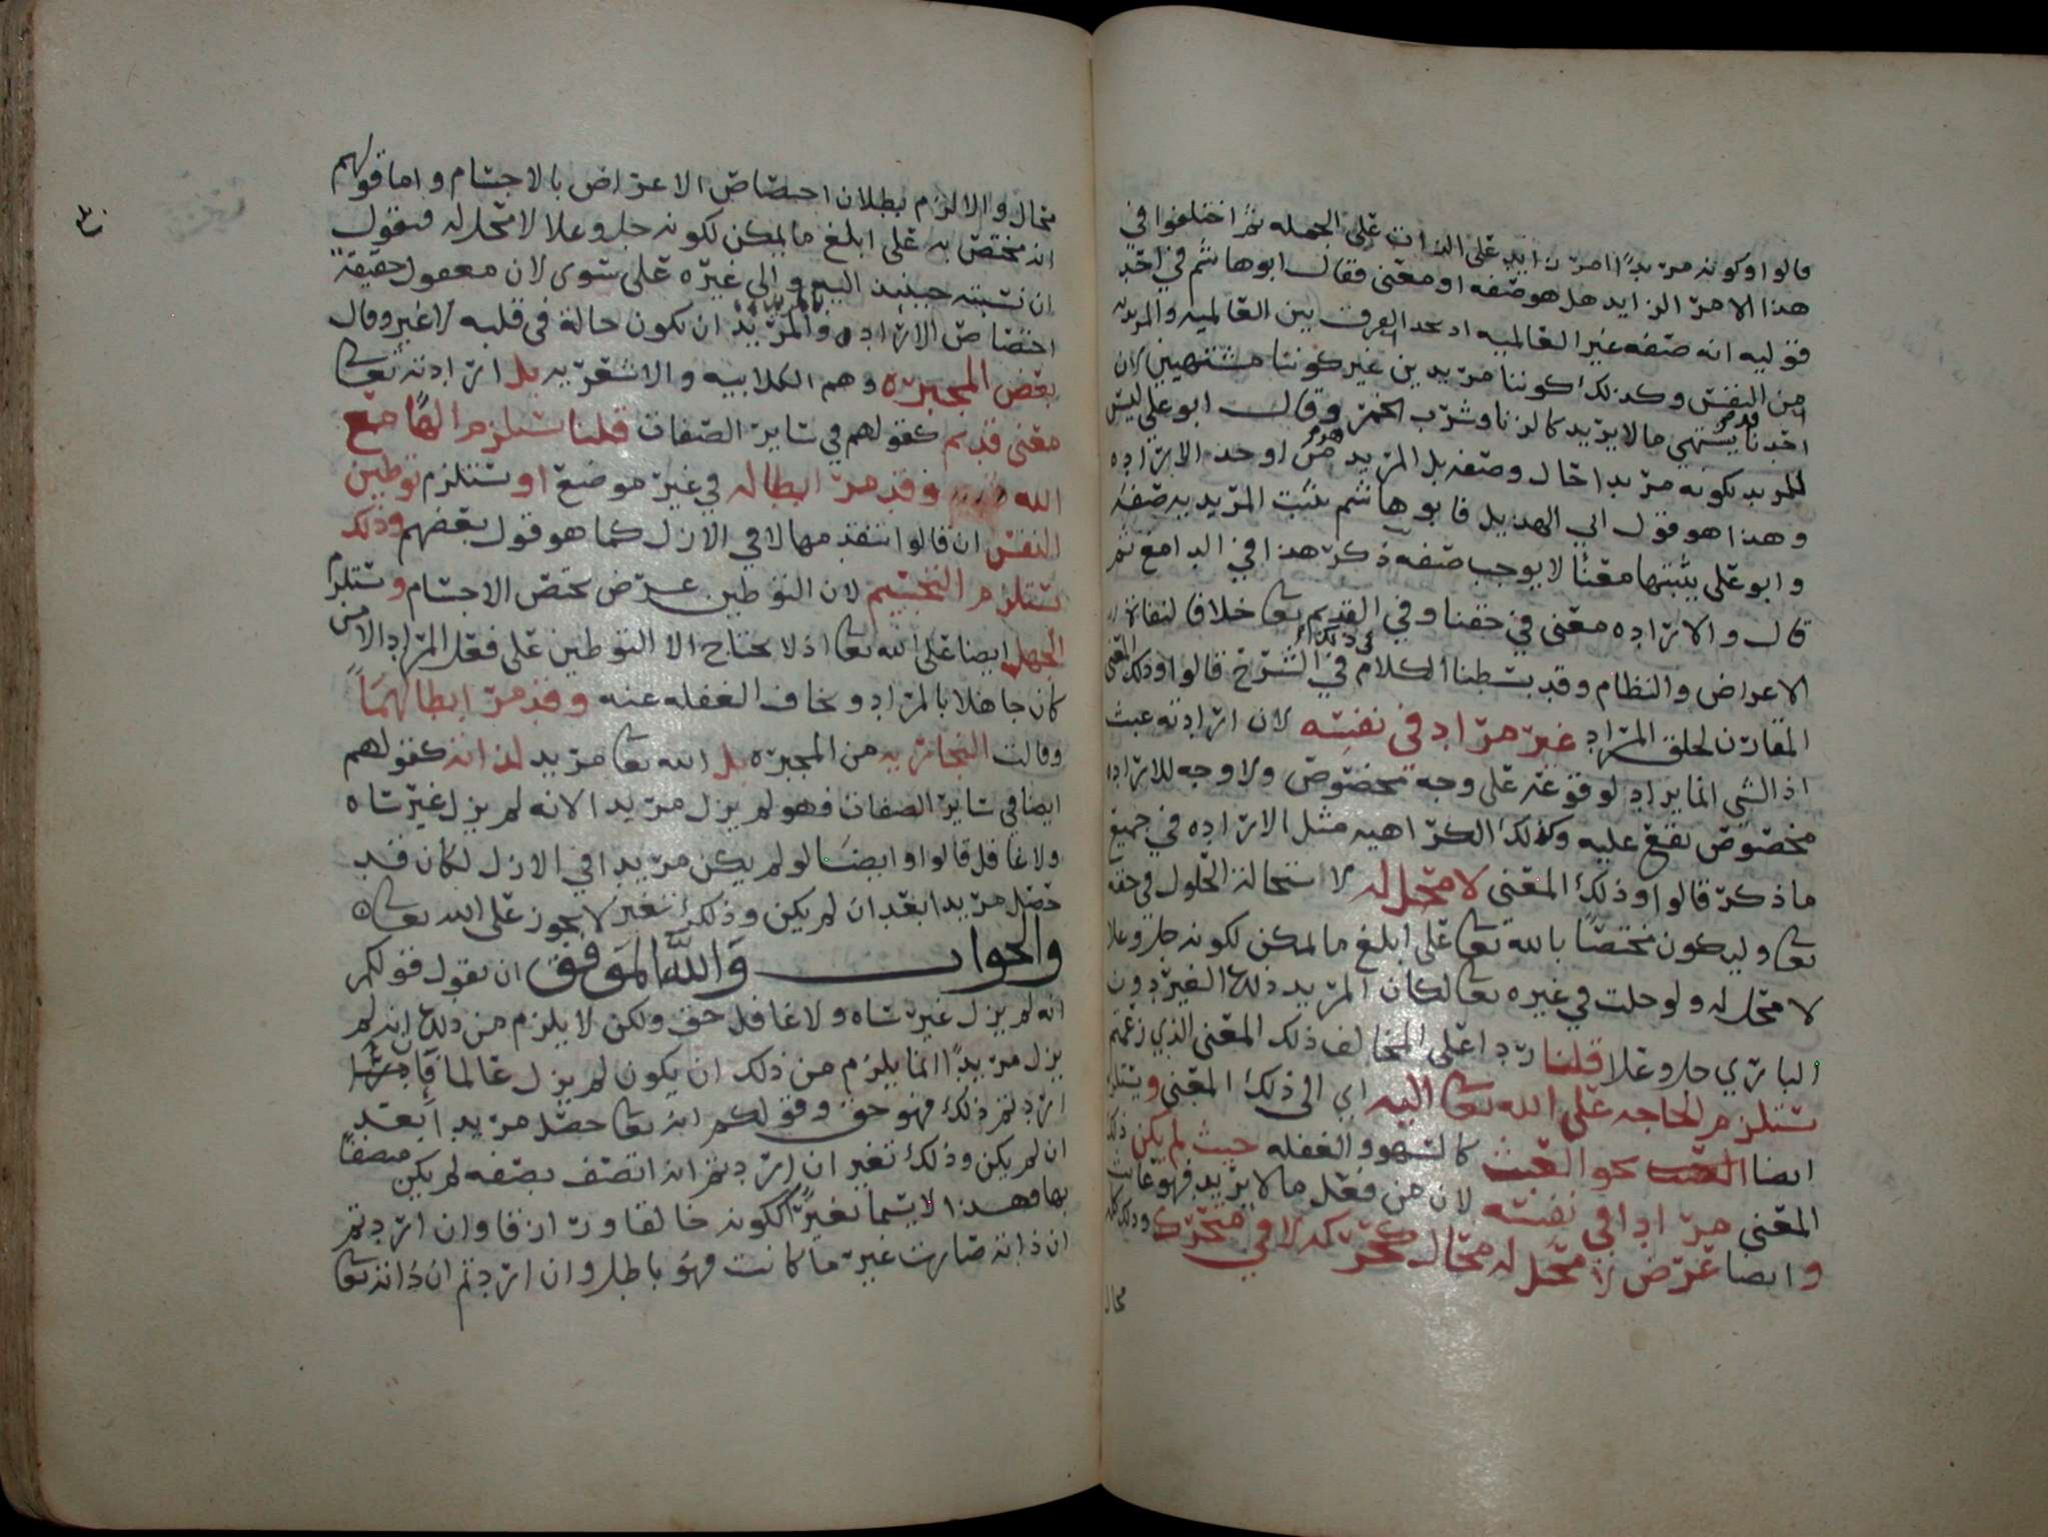 قالوا وكونه مريدًا امر زايد على الذات على الجمله ثم اختلفوا في
هذا الامر الزايد هل هو صفه او معنى فقال ابو هاشم في احد
قوليه انه صفه غير العالميه اذ نجد الفرق بين العالميه والمريديه
من النفس وكذلك كوننا مريدين غير كوننا مشتهيين لان
احدنا قد يشتهي ما لا يريد كالزنا وشرب الخمر وقال ابو علي ليس
للمريد بكونه مريدا حال وصفه بل المريد من اوجد الاراده
وهذا هو قول ابي الهذيل فابو هاشم يثبت المريديه صفه
وابو علي يثبتها معنًا لا يوجب صفه ذكر هذا في الدامغ ثم
قال والاراده معنى في حقنا وفي القديم تعا خلافا لنفاة
الاعراض والنظام وقد بسطنا الكلام في ذلك في الشرح قالوا وذلك المعنى
المقارن لخلق المراد غير مراد في نفسه لان ارادته عبث
اذ الشي انما يراد لوقوعه على وجه مخصوص ولا وجه للاراده
مخصوص تقع عليه وكذلك الكراهيه مثل الاراده في جميع
ما ذكر قالوا وذلك المعنى لا محل له لاستحالة الحلول في حقه
تعا وليكون مختصًا بالله تعا على ابلغ ما يمكن لكونه جل وعلا
لا محل له ولو حلت في غيره تعا لكان المريد ذلك الغير دون
الباري جل وعلا قلنا ردا على المخالف ذلك المعنى الذي زعمتم
يستلزم الحاجه على الله تعا اليه اي الى ذلك المعنى ويستلزم
ايضا نحو العبث كالسهو والغفله حيث لم يكن ذلك
المعنى مرادا في نفسه لان من فعل ما لا يريد فهو عابث
وايضا عرض لا محل له محال كحركه لا في متحرك وذلك كله
محال
٣٠
محال والا لزم بطلان اختصاص الاعراض بالاجسام واما قولهم
انه مختص به على ابلغ ما يمكن لكونه جل وعلا لا محل له فنقول
ان نسبته حينئذ اليه والى غيره على سوى لان معقول حقيقة
اختصاص الاراده والمريد ان يكون حالة في قلبه لا غير وقال
بعض المجبره وهم الكلابيه والاشعريه بل ارادته تعا
معنى قديم كقولهم في ساير الصفات قلنا يستلزم الهًا مع
الله وقد مر ابطاله في غير موضع او يستلزم توطين
النفس ان قالوا بتقدمها لا في الازل كما هو قول بعضهم وذلك
يستلزم التجسيم لان التوطين عرض يختص الاجسام ويستلزم
الجهل ايضا على الله تعا اذ لا يحتاج الا التوطين على فعل المراد الا من
كان جاهلا بالمراد ويخاف الغفله عنه وقد مر ابطالهما
وقالت النجاريه من المجبره بل الله تعا مريد لذاته كقولهم
ايضا في ساير الصفات فهو لم يزل مريدا لانه لم يزل غير ساه
ولا غافل قالوا وايضا لو لم يكن مريدا في الازل لكان قد
حصل مريدا بعد ان لم يكن وذلك تغير لا يجوز على الله تعا
والجواب والله الموفق ان نقول قولكم
انه لم يزل غير ساه ولا غافل حق ولكن لا يلزم من ذلك انه لم
يزل مريدًا انما يلزم من ذلك ان يكون لم يزل عالما فان
اردتم ذلك فهو حق وقولكم انه تعا حصل مريدا بعد
ان لم يكن وذلك تغير ان اردتم انه اتصف بصفه لم يكن متصفًا
بها فهذا لا يسما تغيرًا ككونه خالقا ورازقا وان اردتم
ان ذاته صارت غير ما كانت فهو باطل وان اردتم ان ذاته تعا